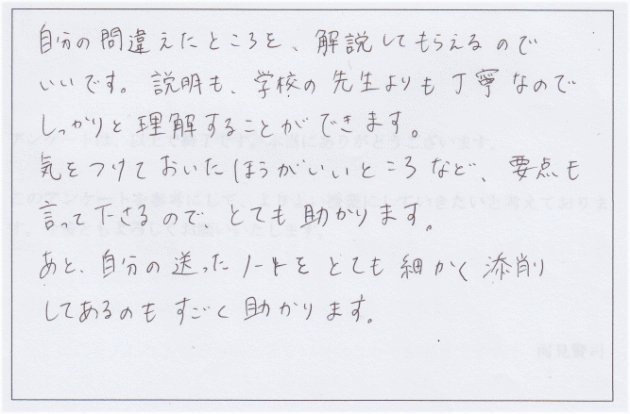 自分の間違えたところを、解説してもらえるので
いいです。説明も、学校の先生よりも丁寧なので
しっかりと理解することができます。
気をつけておいたほうがいいところなど、要点も
言って下さるので、とても助かります。
あと、自分の送ったノートをとても細かく添削
してあるのもすごく助かります。